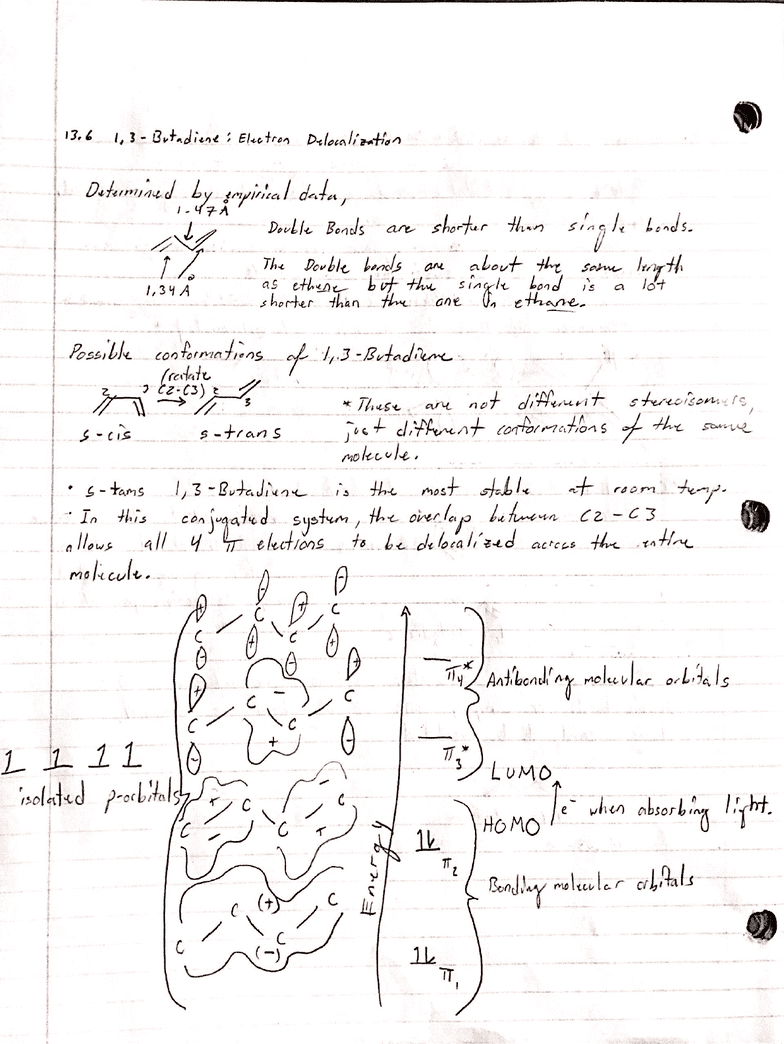 13.6 1,3-Butadiene: Electron Delocalization
Determined by empirical data,
1.47Å
1.34Å
Double Bonds are shorter than single bonds.
The Double bonds are about the same length
as ethene but the single bond is a lot
shorter than the one in ethane.
Possible conformations of 1,3-Butadiene
(rotate
C2-C3)
2 3
2 3
s-cis s-trans
* These are not different stereoisomers,
just different conformations of the same
molecule.
· s-tans 1,3-Butadiene is the most stable at room temp.
· In this conjugated system, the overlap between C2-C3
allows all 4 π elections to be delocalized across the entire
molecule.
+ - + -
C C C C
- + - +
+ C - C +
C + C -
π4*
Antibonding molecular orbitals
π3*
LUMO
1 1 1 1
isolated p-orbitals
+ C - C
C - C +
Energy
HOMO
e⁻ when absorbing light.
1L π2
Bonding molecular orbitals
C (+) C
C (-) C
1L π1